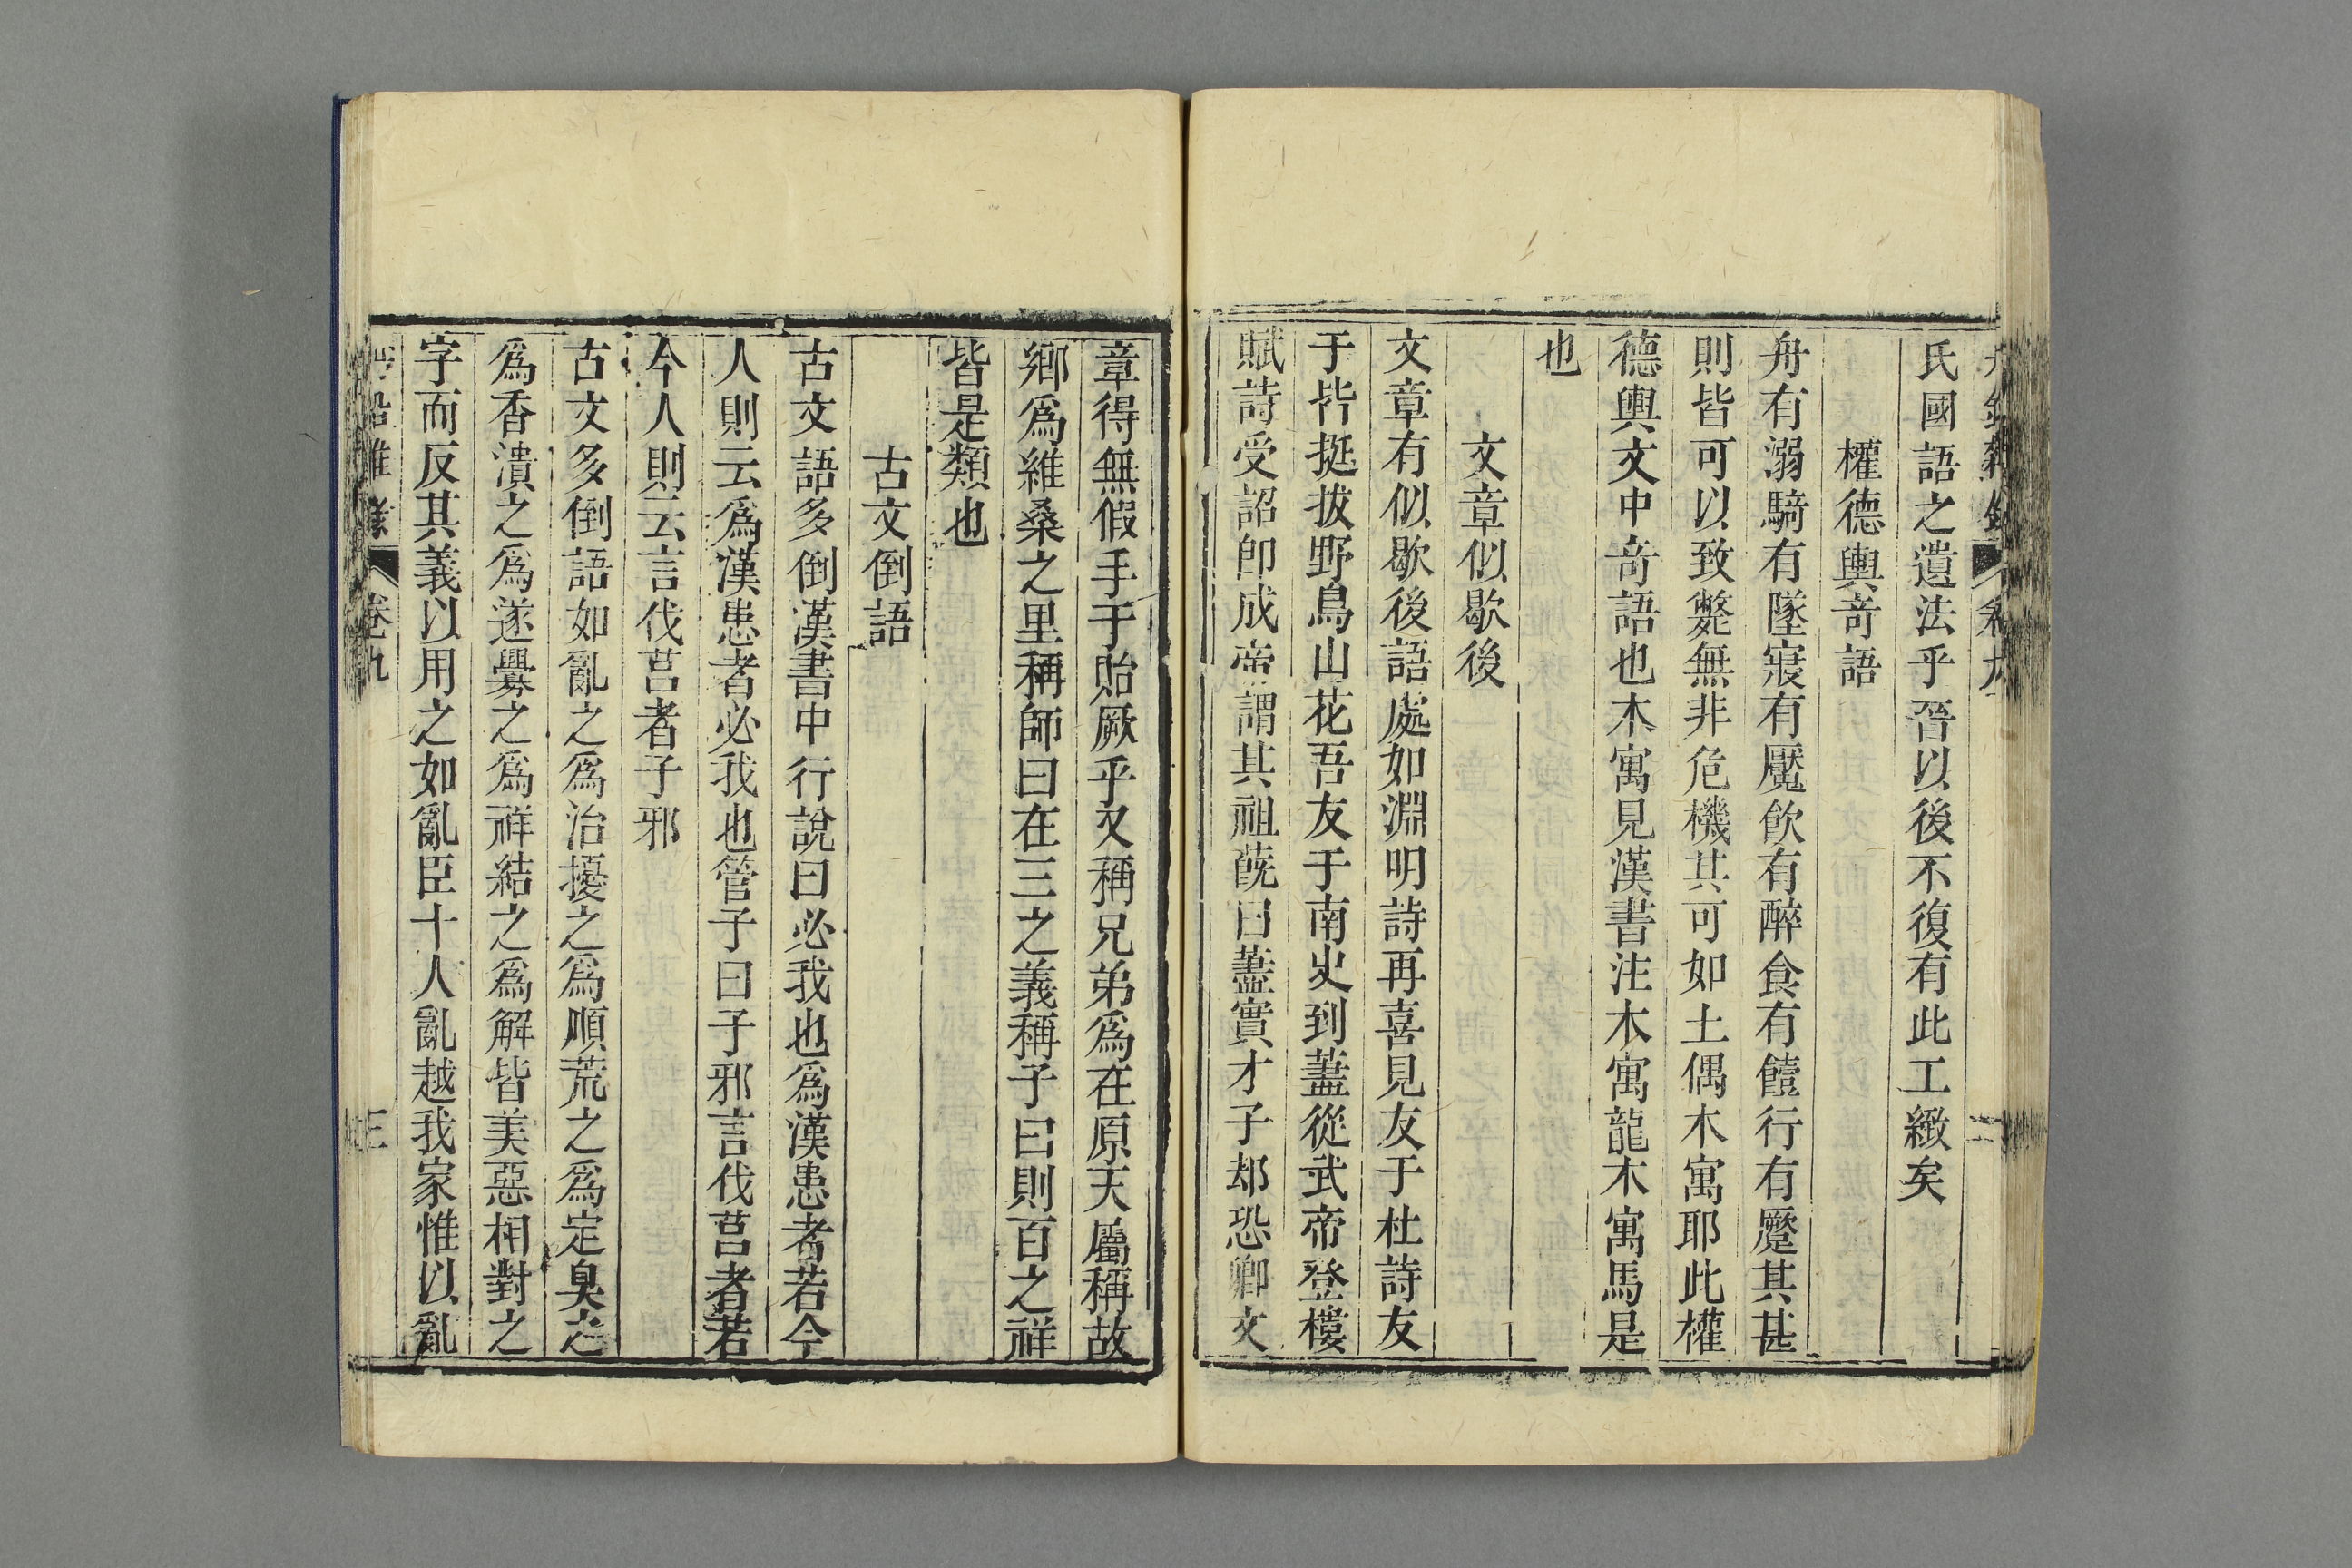 氏國語之遺法乎晉以後不復有此工緻矣
權德輿竒語
舟有溺騎有墜寢有魘飲有醉食有饐行有蹷其甚
則皆可以致斃無非危機其可如土偶木寓耶此權
德輿文中竒語也木寓見漢書注木寓龍木寓馬是
也
文章似歇後
文章有似歇後語處如淵明詩再喜見友于杜詩友
于皆挺拔野鳥山花吾友于南史到藎從武帝登樓
賦詩受詔卽成帝謂其祖㵙曰藎實才子却恐卿文
章得無假手于貽厥乎又稱兄弟爲在原天屬稱故
鄉爲維桑之里稱師曰在三之義稱子曰則百之祥
皆是類也
古文倒語
古文語多倒漢書中行說曰必我也爲漢患者若今
人則云爲漢患者必我也管子曰子邪言伐莒者若
今人則云言伐莒者子邪
古文多倒語如亂之爲治擾之爲順荒之爲定臭之
爲香潰之爲遂釁之爲祥結之爲解皆美惡相對之
字而反其義以用之如亂臣十人亂越我家惟以亂
卷九
三